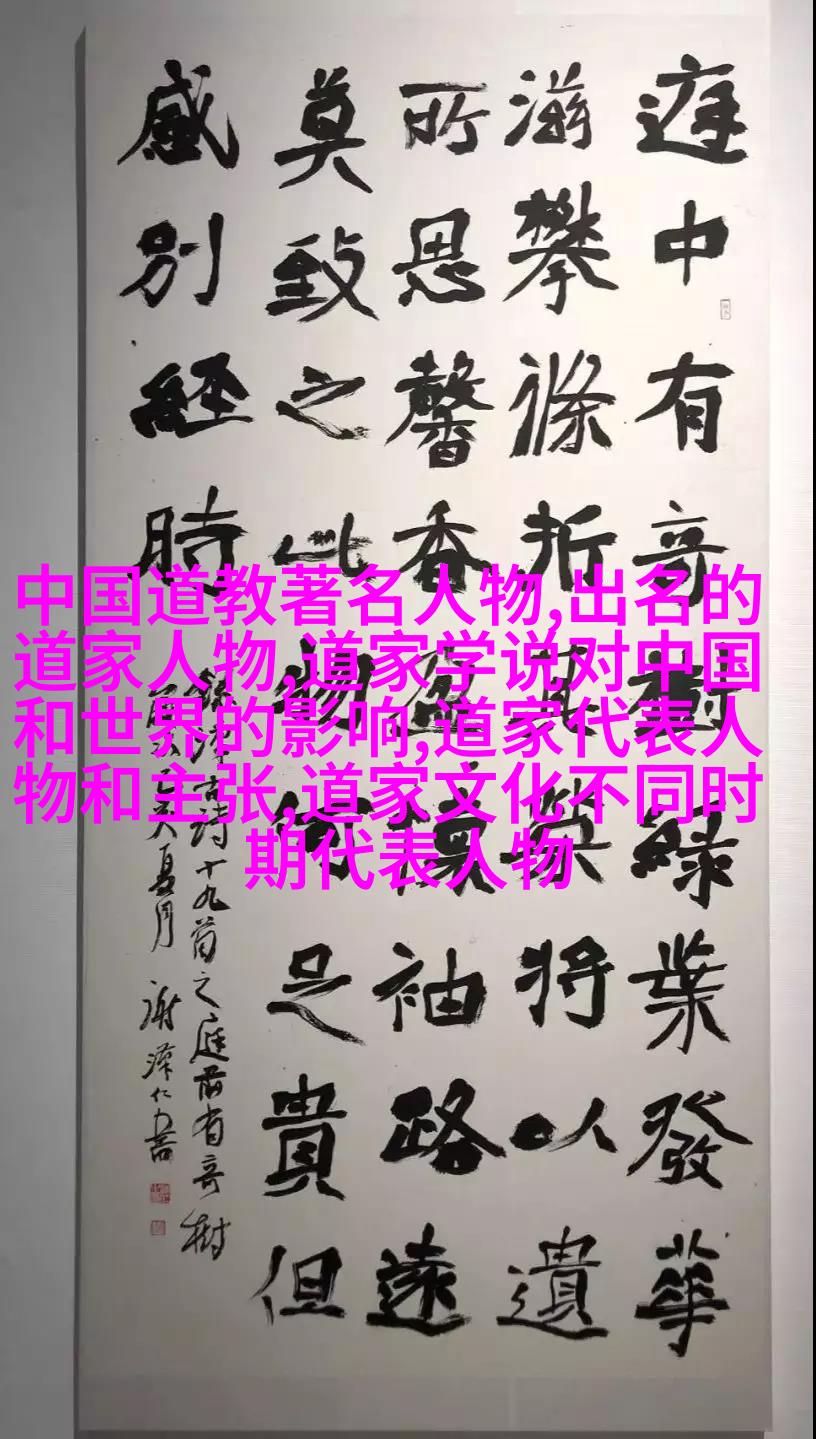 庭中有奇樹綠葉發華
滋攀條折其榮將以遺
所思馨香盈懷袖路遠
莫致之此物何足貴但
感別經時
錄漢古詩十九首之庭前有奇樹
夏月 謝澤仁書
中国道教著名人物,出名的
道家人物,道家学说对中国
和世界的影响,道家代表人
物和主张,道家文化不同时
期代表人物